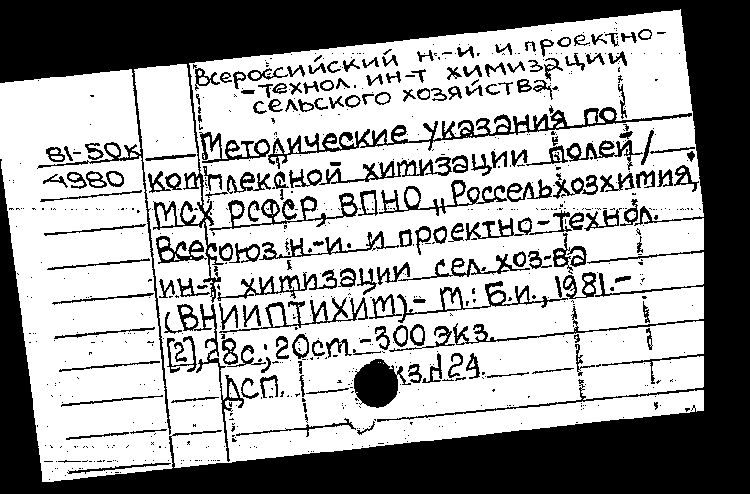 Всероссийский н.-и. и проектно-
-технол. ин-т химизации
сельского хозяйства.
81-50к Методические указания по
4980 комплексной химизации полей/
МСХ РСФСР, ВПНО „Россельхозхимия",
Всесоюз. н.-и. и проектно-технол.
ин-т химизации сел. хоз-ва
(ВНИИПТИХИМ).- М.: Б.и., 1981.-
[2], 28с.; 20см.-300 экз.
ДСП. кз.№24.